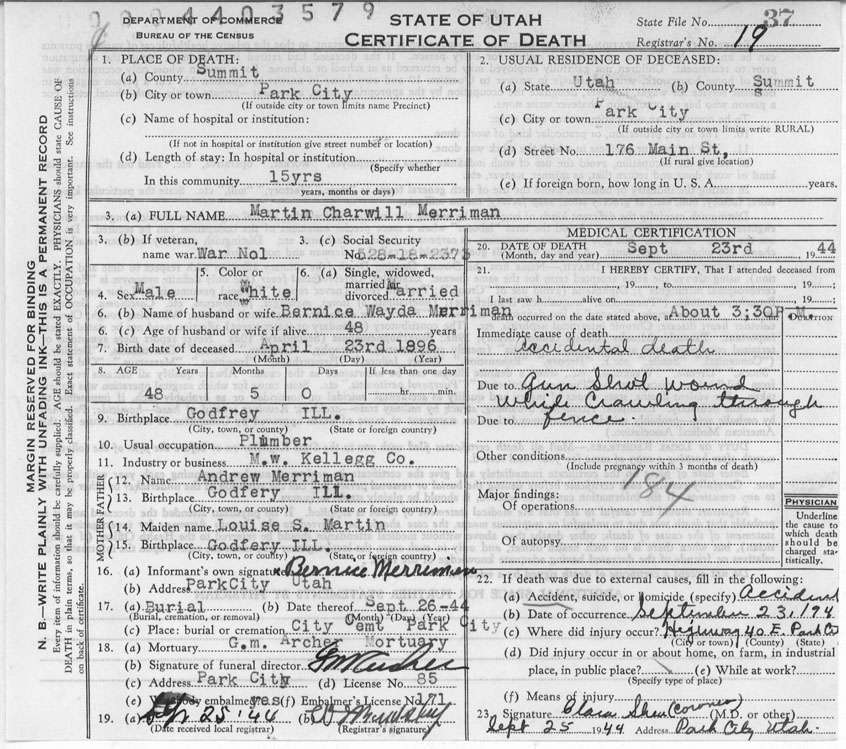 0004403579
DEPARTMENT OF COMMERCE
BUREAU OF THE CENSUS
STATE OF UTAH
CERTIFICATE OF DEATH
State File No. 37
Registrar's No. 19
MARGIN RESERVED FOR BINDING
N. B.—WRITE PLAINLY WITH UNFADING INK—THIS IS A PERMANENT RECORD
Every item of information should be carefully supplied. AGE should be stated EXACTLY. PHYSICIANS should state CAUSE OF
DEATH in plain terms, so that it may be properly classified. Exact statement of OCCUPATION is very important. See instructions
on back of certificate.
1. PLACE OF DEATH:
(a) County Summit
(b) City or town Park City
(If outside city or town limits name Precinct)
(c) Name of hospital or institution:
(If not in hospital or institution give street number or location)
(d) Length of stay: In hospital or institution
(Specify whether
In this community 15yrs
years, months or days)
2. USUAL RESIDENCE OF DECEASED:
(a) State Utah (b) County Summit
(c) City or town Park City
(If outside city or town limits write RURAL)
(d) Street No. 176 Main St,
(If rural give location)
(e) If foreign born, how long in U. S. A. years.
3. (a) FULL NAME Martin Charwill Merriman
3. (b) If veteran, name war War No1 3. (c) Social Security No. 528-18-2373
4. Sex Male 5. Color or race White 6. (a) Single, widowed, married or divorced Married
6. (b) Name of husband or wife Bernice Wayda Merriman
6. (c) Age of husband or wife if alive 48 years
7. Birth date of deceased April 23rd 1896
(Month) (Day) (Year)
8. AGE Years Months Days If less than one day
48 5 0 hr. min.
9. Birthplace Godfrey ILL.
(City, town, or county) (State or foreign country)
10. Usual occupation Plumber
11. Industry or business M.w. Kellegg Co.
FATHER
12. Name Andrew Merriman
13. Birthplace Godfery ILL.
(City, town, or county) (State or foreign country)
MOTHER
14. Maiden name Louise S. Martin
15. Birthplace Godfery ILL.
(City, town, or county) (State or foreign country)
16. (a) Informant's own signature Bernice Merriman
(b) Address ParkCity Utah
17. (a) Burial (b) Date thereof Sept 26-44
(Burial, cremation, or removal) (Month) (Day) (Year)
(c) Place: burial or cremation City Cemt Park City
18. (a) Mortuary G.m. Archer Mortuary
(b) Signature of funeral director GM Archer
(c) Address Park City (d) License No. 85
(e) Was body embalmed yes (f) Embalmer's License No. 171
19. (a) 25 '44 (b)
(Date received local registrar) (Registrar's signature)
MEDICAL CERTIFICATION
20. DATE OF DEATH Sept 23rd 1944
(Month, day and year)
21. I HEREBY CERTIFY, That I attended deceased from
, 19 , to , 19 ;
I last saw h alive on , 19 ;
death occurred on the date stated above, at About 3;30P M.
DURATION
Immediate cause of death
accidental death
Due to Gun Shot wound
While Crawling through
Due to fence.
Other conditions
(Include pregnancy within 3 months of death)
184
Major findings:
Of operations
Of autopsy
PHYSICIAN
Underline
the cause to
which death
should be
charged sta-
tistically.
22. If death was due to external causes, fill in the following:
(a) Accident, suicide, or homicide (specify) Accident
(b) Date of occurrence September 23, 194
(c) Where did injury occur? Highway 40 E. Park
(City or town) (County) (State)
(d) Did injury occur in or about home, on farm, in industrial
place, in public place? (e) While at work?
(Specify type of place)
(f) Means of injury
23. Signature Clara Shea (Coroner)
(M.D. or other)
Sept 25 1944 Address Park City Utah.